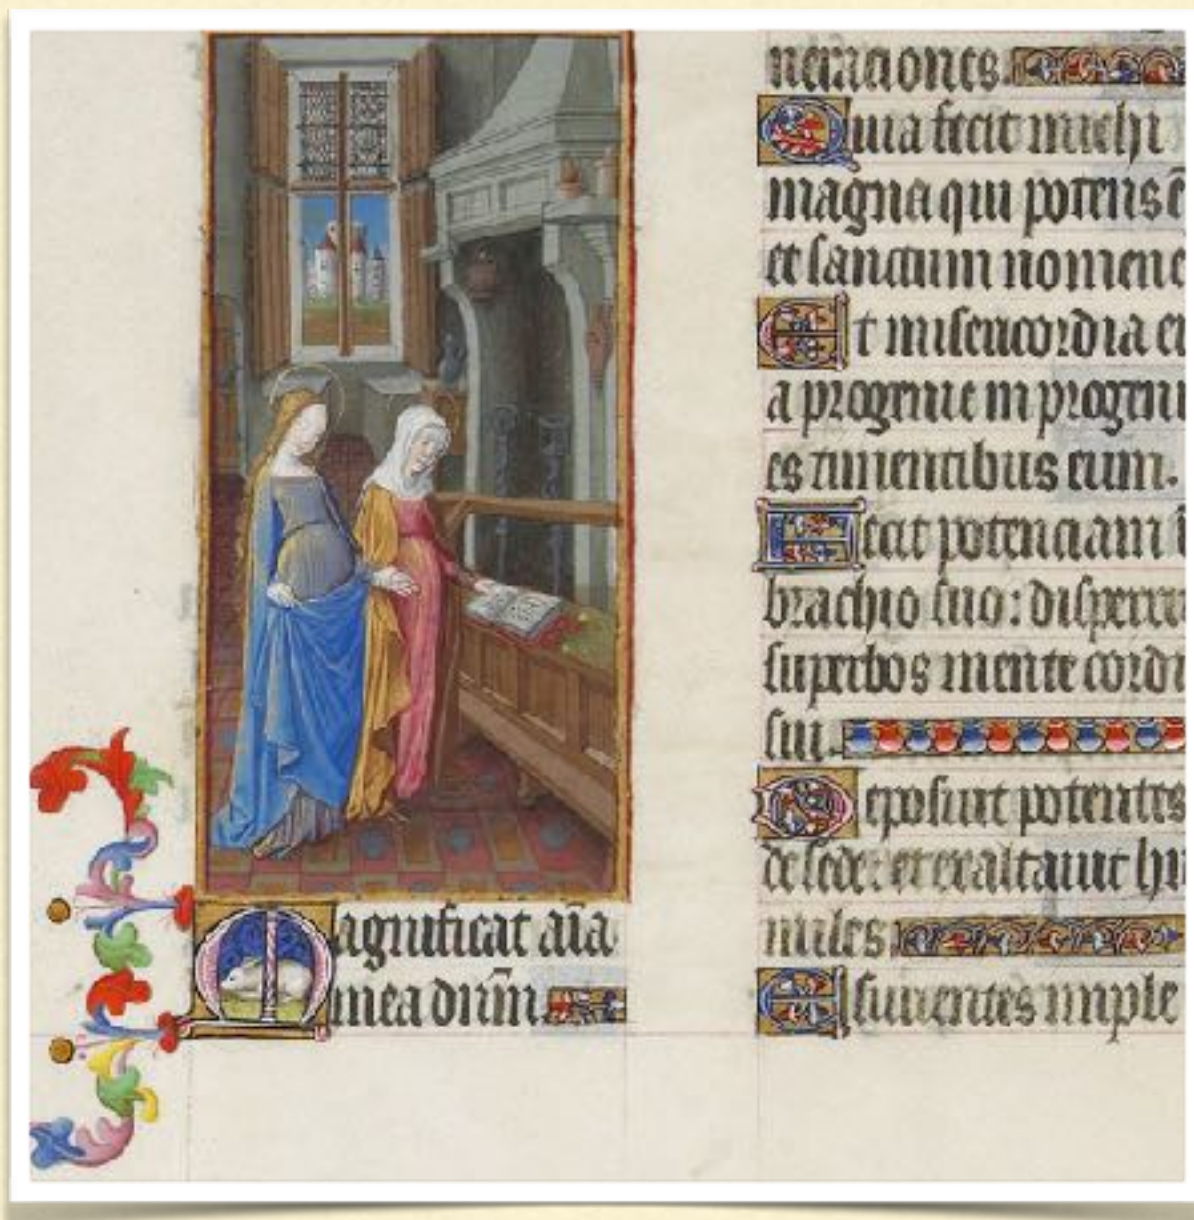 Magnificat aĩa
mea dñm
neraciones.
Quia fecit michi
magna qui potens ẽ
et sanctum nomen e
Et misericordia ei
a progenie in progeni
es timentibus eum.
Fecit potenciam ĩ
brachio suo: dispers
superbos mente cordi
sui.
Deposuit potentes
de sede: et exaltauit hu
miles
Esurientes imple